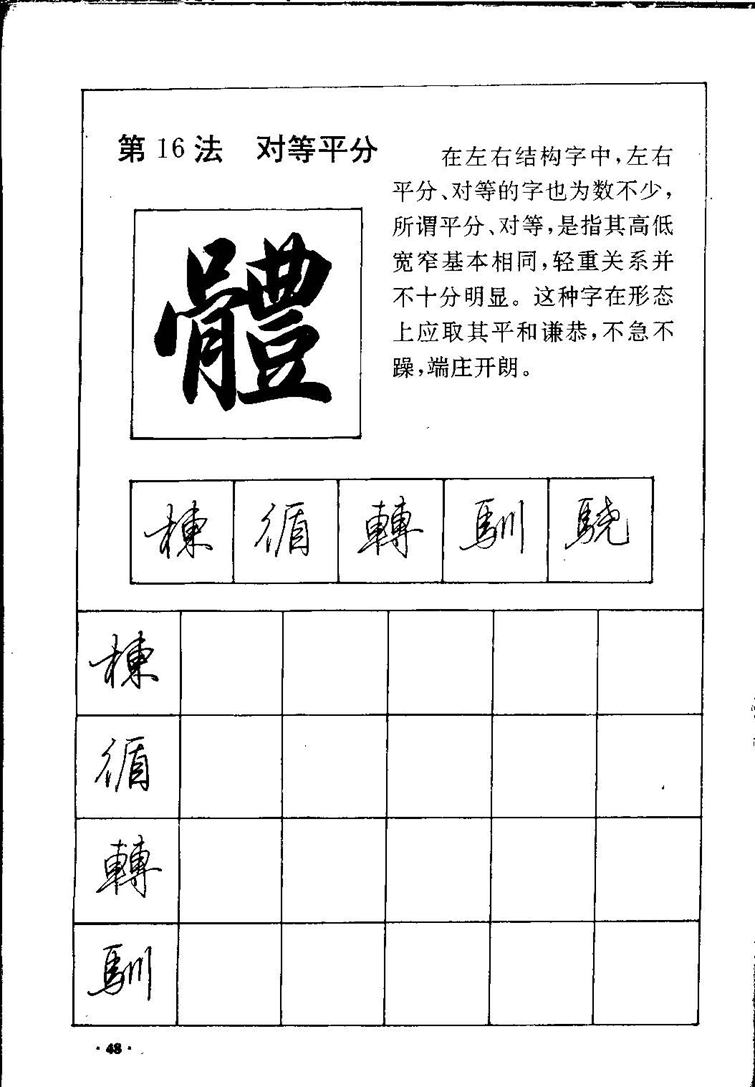 第16法 对等平分
在左右结构字中,左右
平分、对等的字也为数不少,
所谓平分、对等,是指其高低
宽窄基本相同,轻重关系并
不十分明显。这种字在形态
上应取其平和谦恭,不急不
躁,端庄开朗。
體
棟 循 轉 馴 驍
棟
循
轉
馴
·48·